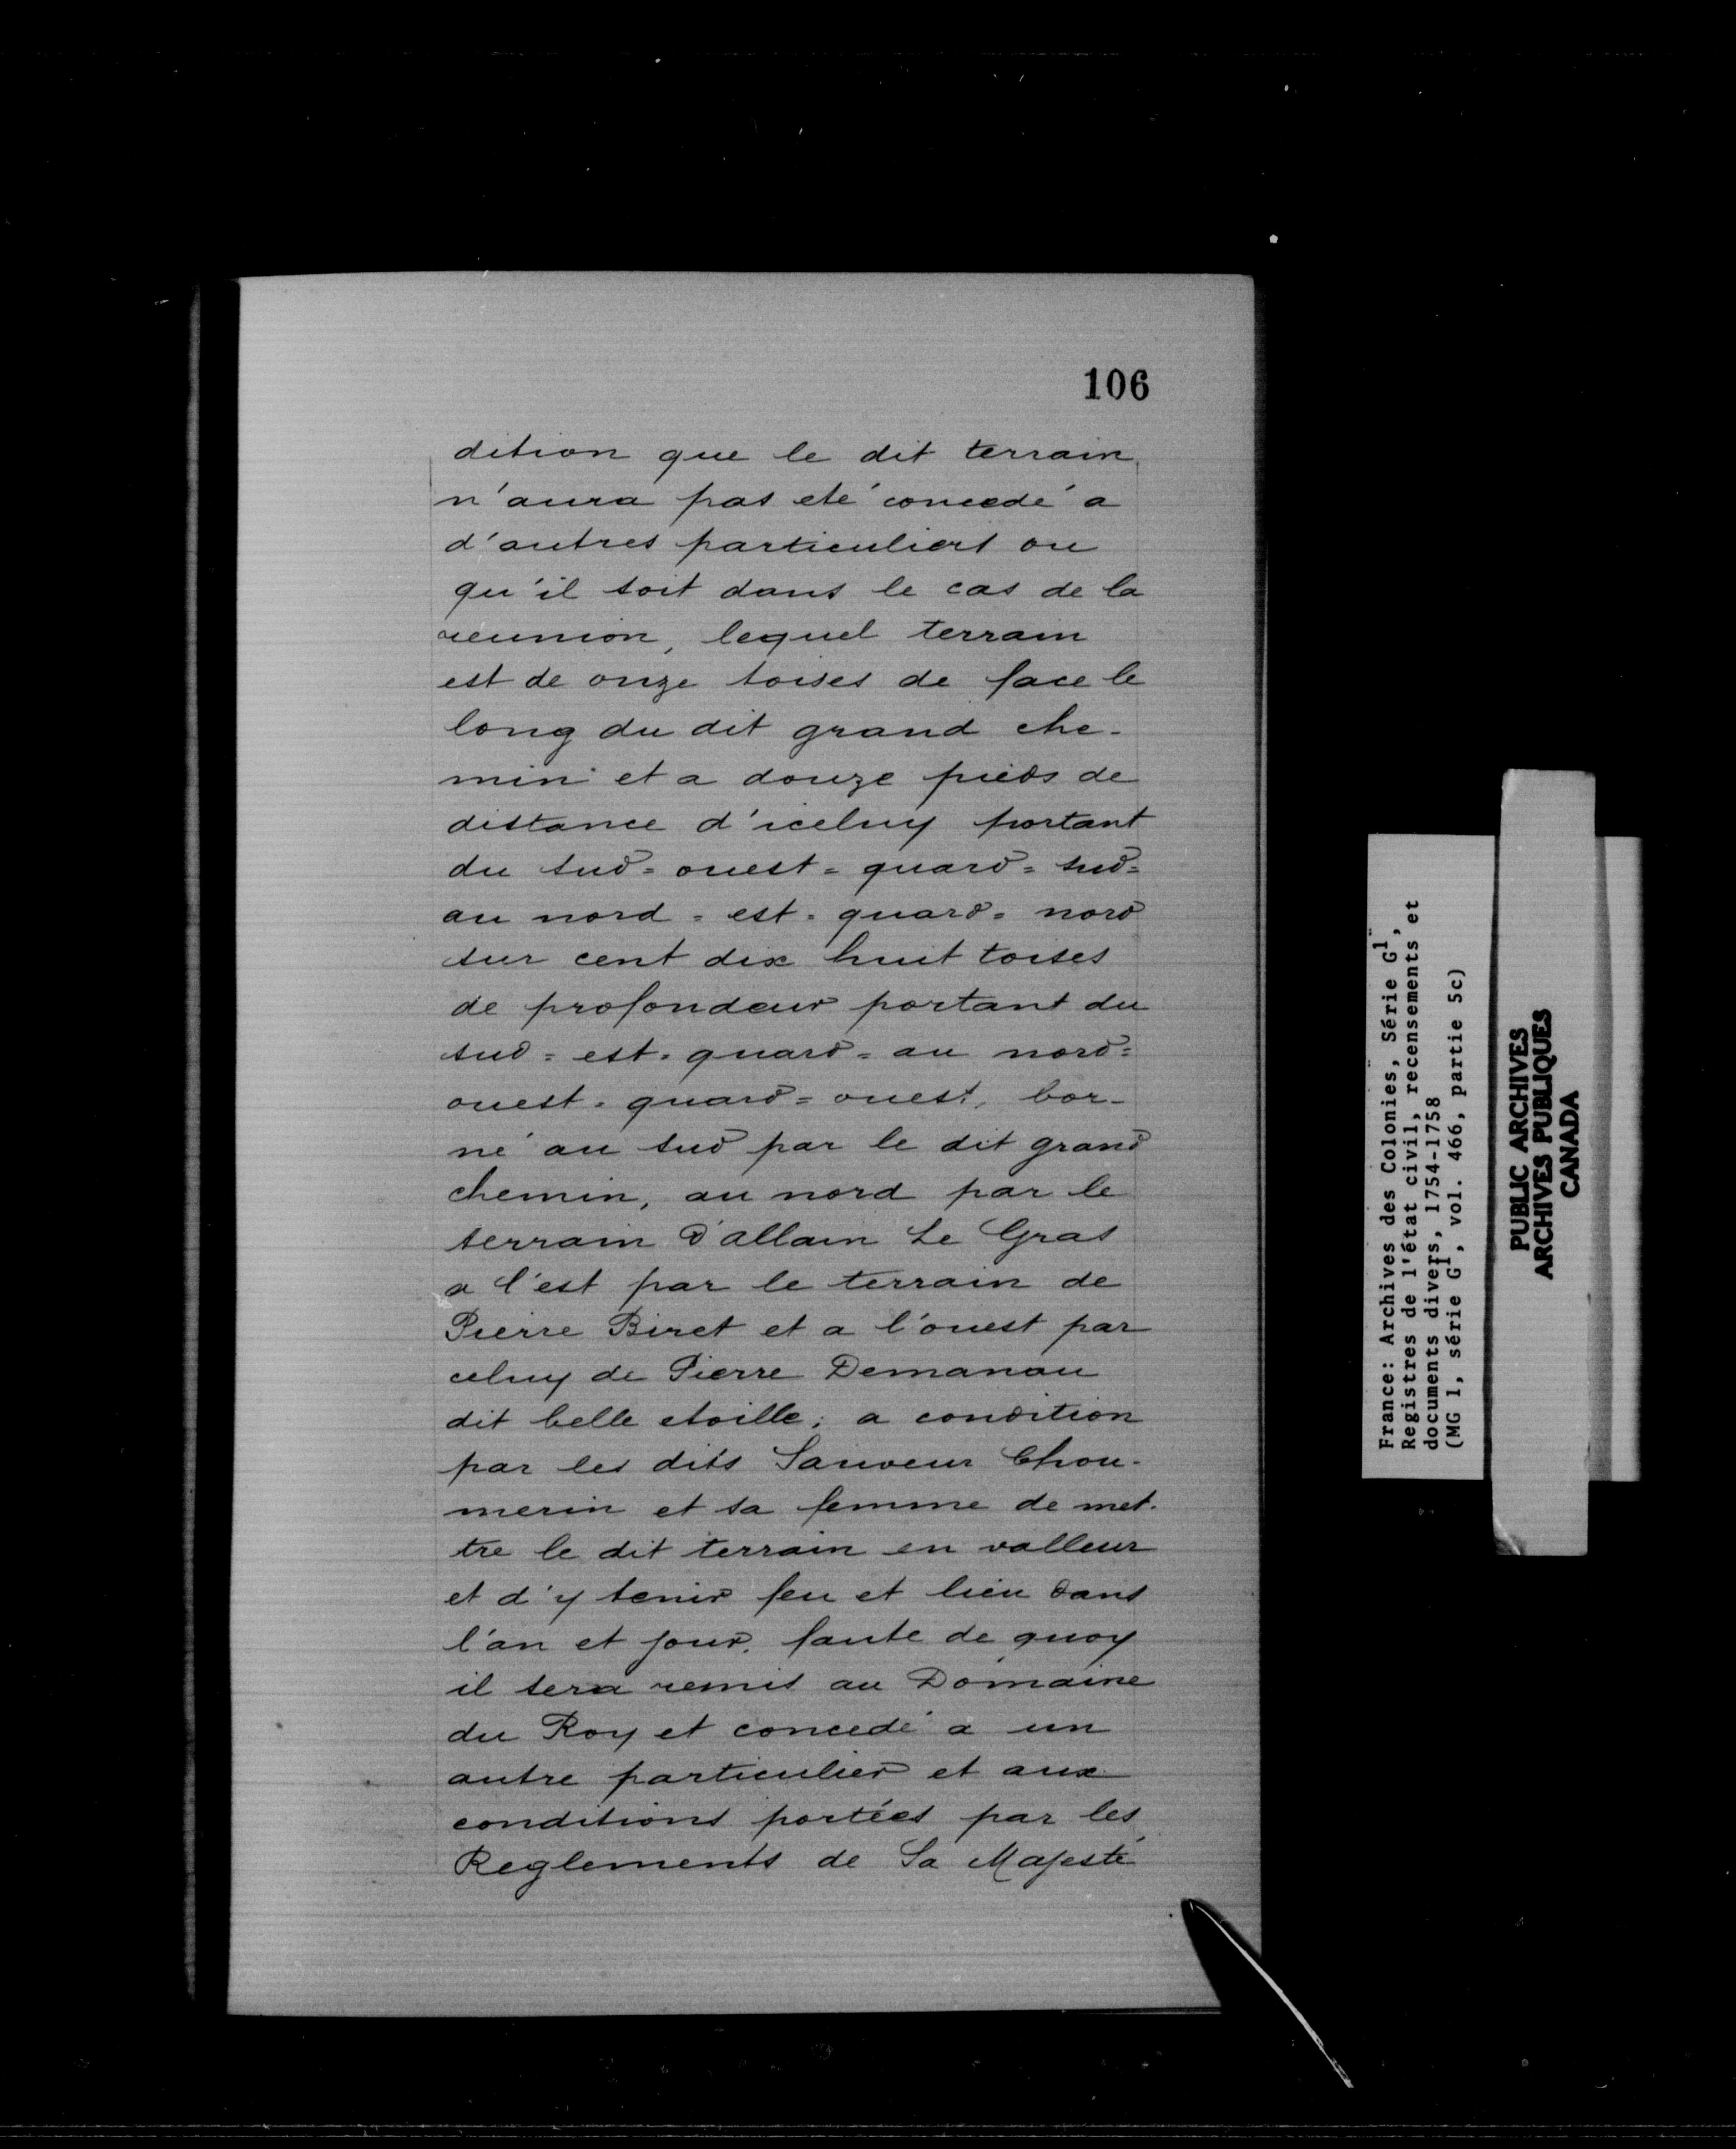 106
dition que le dit terrain
n'aura pas eté concedé a
d'autres particuliers ou
qu'il soit dans le cas de la
reunion, lequel terrain
est de onze toises de face le
long du dit grand che-
min et a douze pieds de
distance d'iceluy portant
du sud=ouest=quard=sud=
au nord=est=quard=nord
sur cent dix huit toises
de profondeur portant du
sud=est=quard=au nord=
ouest=quard=ouest, bor-
né au sud par le dit grand
chemin, au nord par le
terrain d'allain Le Gras
a l'est par le terrain de
Pierre Biret et a l'ouest par
celuy de Pierre Demanau
dit belle etoille; a condition
par les dits Sauveur Chou-
merin et sa femme de met-
tre le dit terrain en valleur
et d'y tenir feu et lieu dans
l'an et jour, faute de quoy
il sera remis au Domaine
du Roy et concedé a un
autre particulier et aux
conditions portées par les
Reglements de Sa Majesté
France: Archives des Colonies, Série G1,
Registres de l'état civil, recensements et
documents divers, 1754-1758
(MG 1, série G1, vol. 466, partie 5c)
PUBLIC ARCHIVES
ARCHIVES PUBLIQUES
CANADA